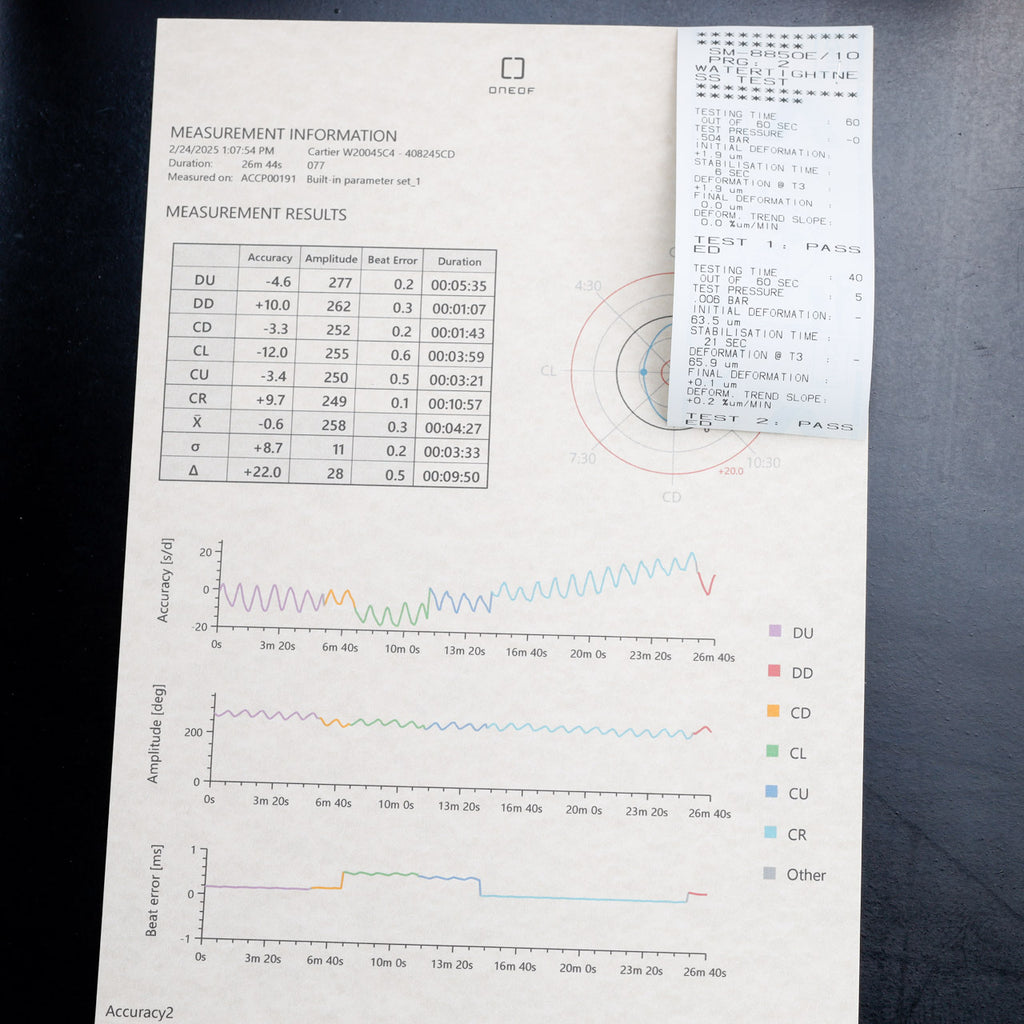 ONEOF
MEASUREMENT INFORMATION
2/24/2025 1:07:54 PM Cartier W20045C4 - 408245CD
Duration: 26m 44s 077
Measured on: ACCP00191 Built-in parameter set_1
MEASUREMENT RESULTS
Accuracy Amplitude Beat Error Duration
DU -4.6 277 0.2 00:05:35
DD +10.0 262 0.3 00:01:07
CD -3.3 252 0.2 00:01:43
CL -12.0 255 0.6 00:03:59
CU -3.4 250 0.5 00:03:21
CR +9.7 249 0.1 00:10:57
X̄ -0.6 258 0.3 00:04:27
σ +8.7 11 0.2 00:03:33
Δ +22.0 28 0.5 00:09:50
4:30
CL
7:30
10:30
+20.0
CD
* * * * * * * * * * * *
* * * * * * * *
SM-8850E/10
PRG: 2
WATERTIGHTNE
SS TEST
* * * * * * * * * * * *
* * * * * * * *
TESTING TIME : 60
OUT OF 60 SEC
TEST PRESSURE : -0
.504 BAR
INITIAL DEFORMATION:
+1.9 um
STABILISATION TIME :
6 SEC
DEFORMATION @ T3 :
+1.9 um
FINAL DEFORMATION :
0.0 um
DEFORM. TREND SLOPE:
0.0 %um/MIN
TEST 1: PASS
ED
TESTING TIME : 40
OUT OF 60 SEC
TEST PRESSURE : 5
.006 BAR
INITIAL DEFORMATION: -
63.5 um
STABILISATION TIME :
21 SEC
DEFORMATION @ T3 : -
65.9 um
FINAL DEFORMATION :
+0.1 um
DEFORM. TREND SLOPE:
+0.2 %um/MIN
TEST 2: PASS
ED
Accuracy [s/d]
20
0
-20
0s 3m 20s 6m 40s 10m 0s 13m 20s 16m 40s 20m 0s 23m 20s 26m 40s
Amplitude [deg]
200
0
0s 3m 20s 6m 40s 10m 0s 13m 20s 16m 40s 20m 0s 23m 20s 26m 40s
Beat error [ms]
1
0
-1
0s 3m 20s 6m 40s 10m 0s 13m 20s 16m 40s 20m 0s 23m 20s 26m 40s
DU
DD
CD
CL
CU
CR
Other
Accuracy2